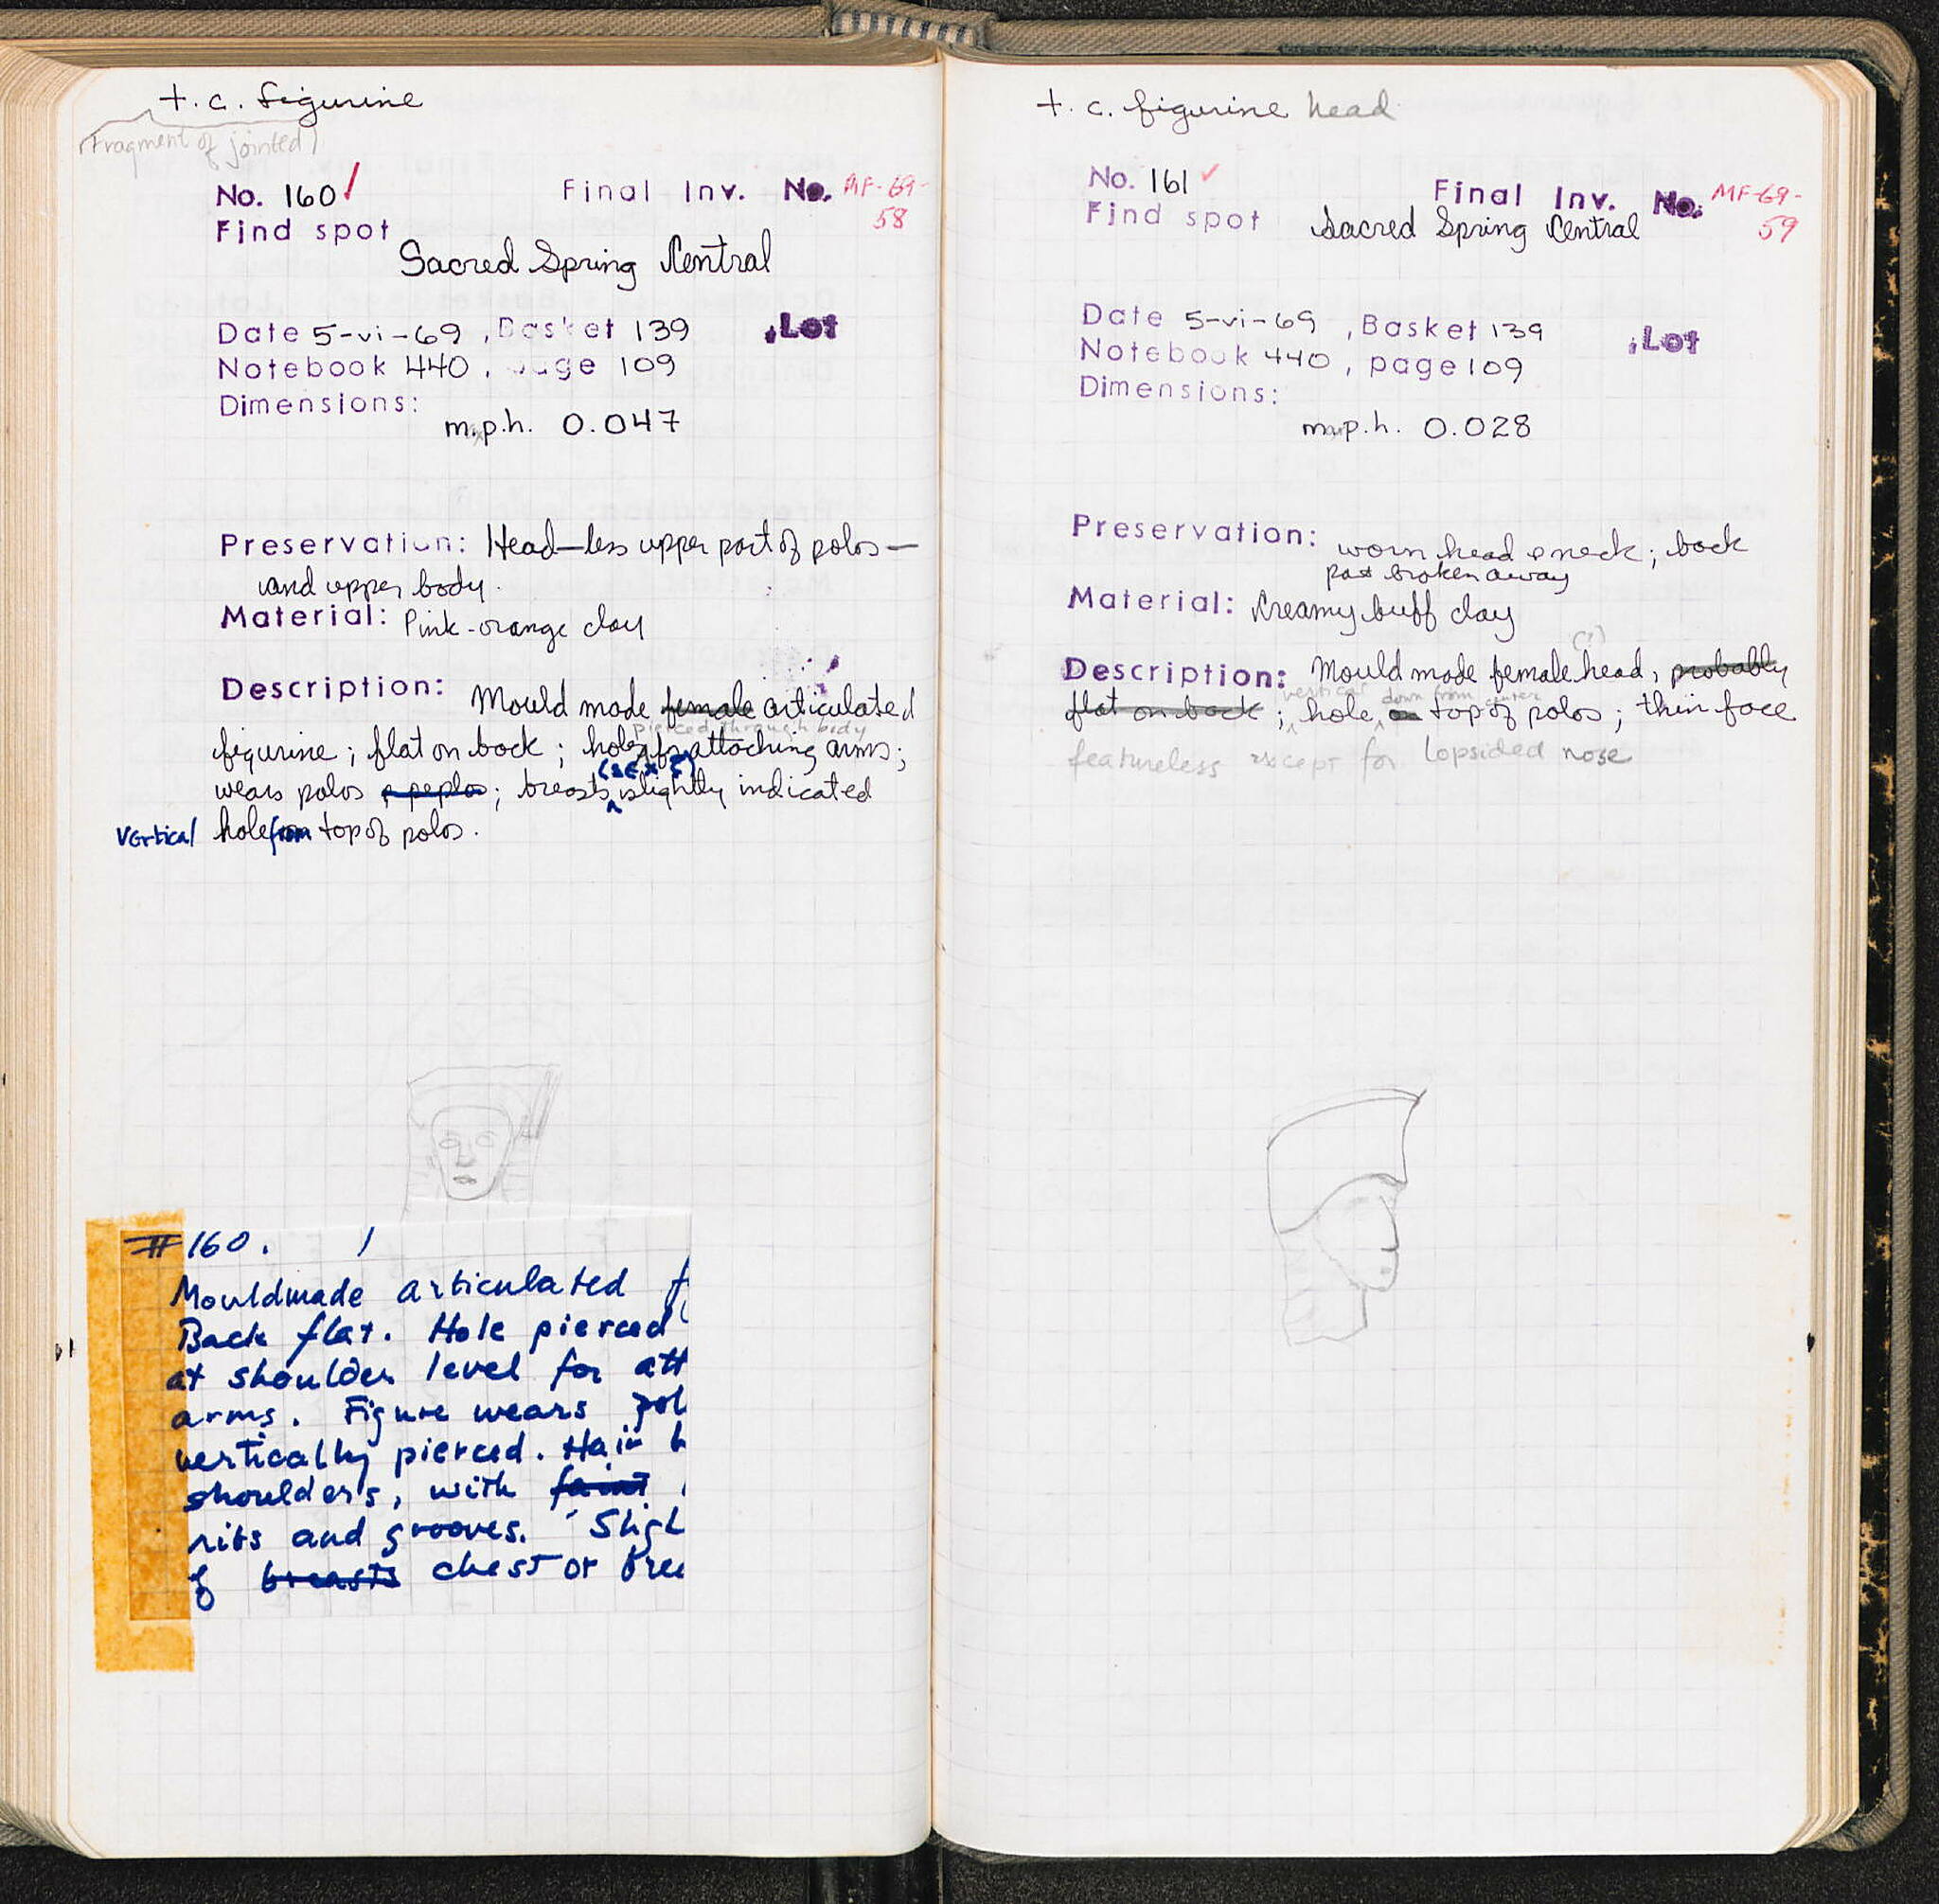 t.c. figurine
(Fragment of jointed)
No. 160 Final Inv. No. MF-69-
58
Find spot
Sacred Spring Central
Date 5-vi-69, Basket 139 , Lot
Notebook 440, page 109
Dimensions:
m.p.h. 0.047
Preservation: Head—less upper part of polos—
and upper body.
Material: Pink-orange clay
Description: Mould made female articulated
pierced through body
figurine; flat on back; holes for attaching arms;
(SEX ?)
wears polos & peplos; breasts slightly indicated
Vertical hole from top of polos.
#160. 1
Mouldmade articulated f
Back flat. Hole pierced
at shoulder level for att
arms. Figure wears pol
vertically pierced. Hair
shoulders, with faint
ribs and grooves. Sligh
of breasts chest or brea
t.c. figurine head
No. 161 Final Inv. No. MF-69-
59
Find spot Sacred Spring Central
Date 5-vi-69, Basket 139 , Lot
Notebook 440, page 109
Dimensions:
m.p.h. 0.028
Preservation: worn head & neck; back
part broken away
Material: Creamy buff clay
(?)
Description: Mould made female head, probably
vertical down from center
flat on back; hole on top of polos; thin face
featureless except for lopsided nose